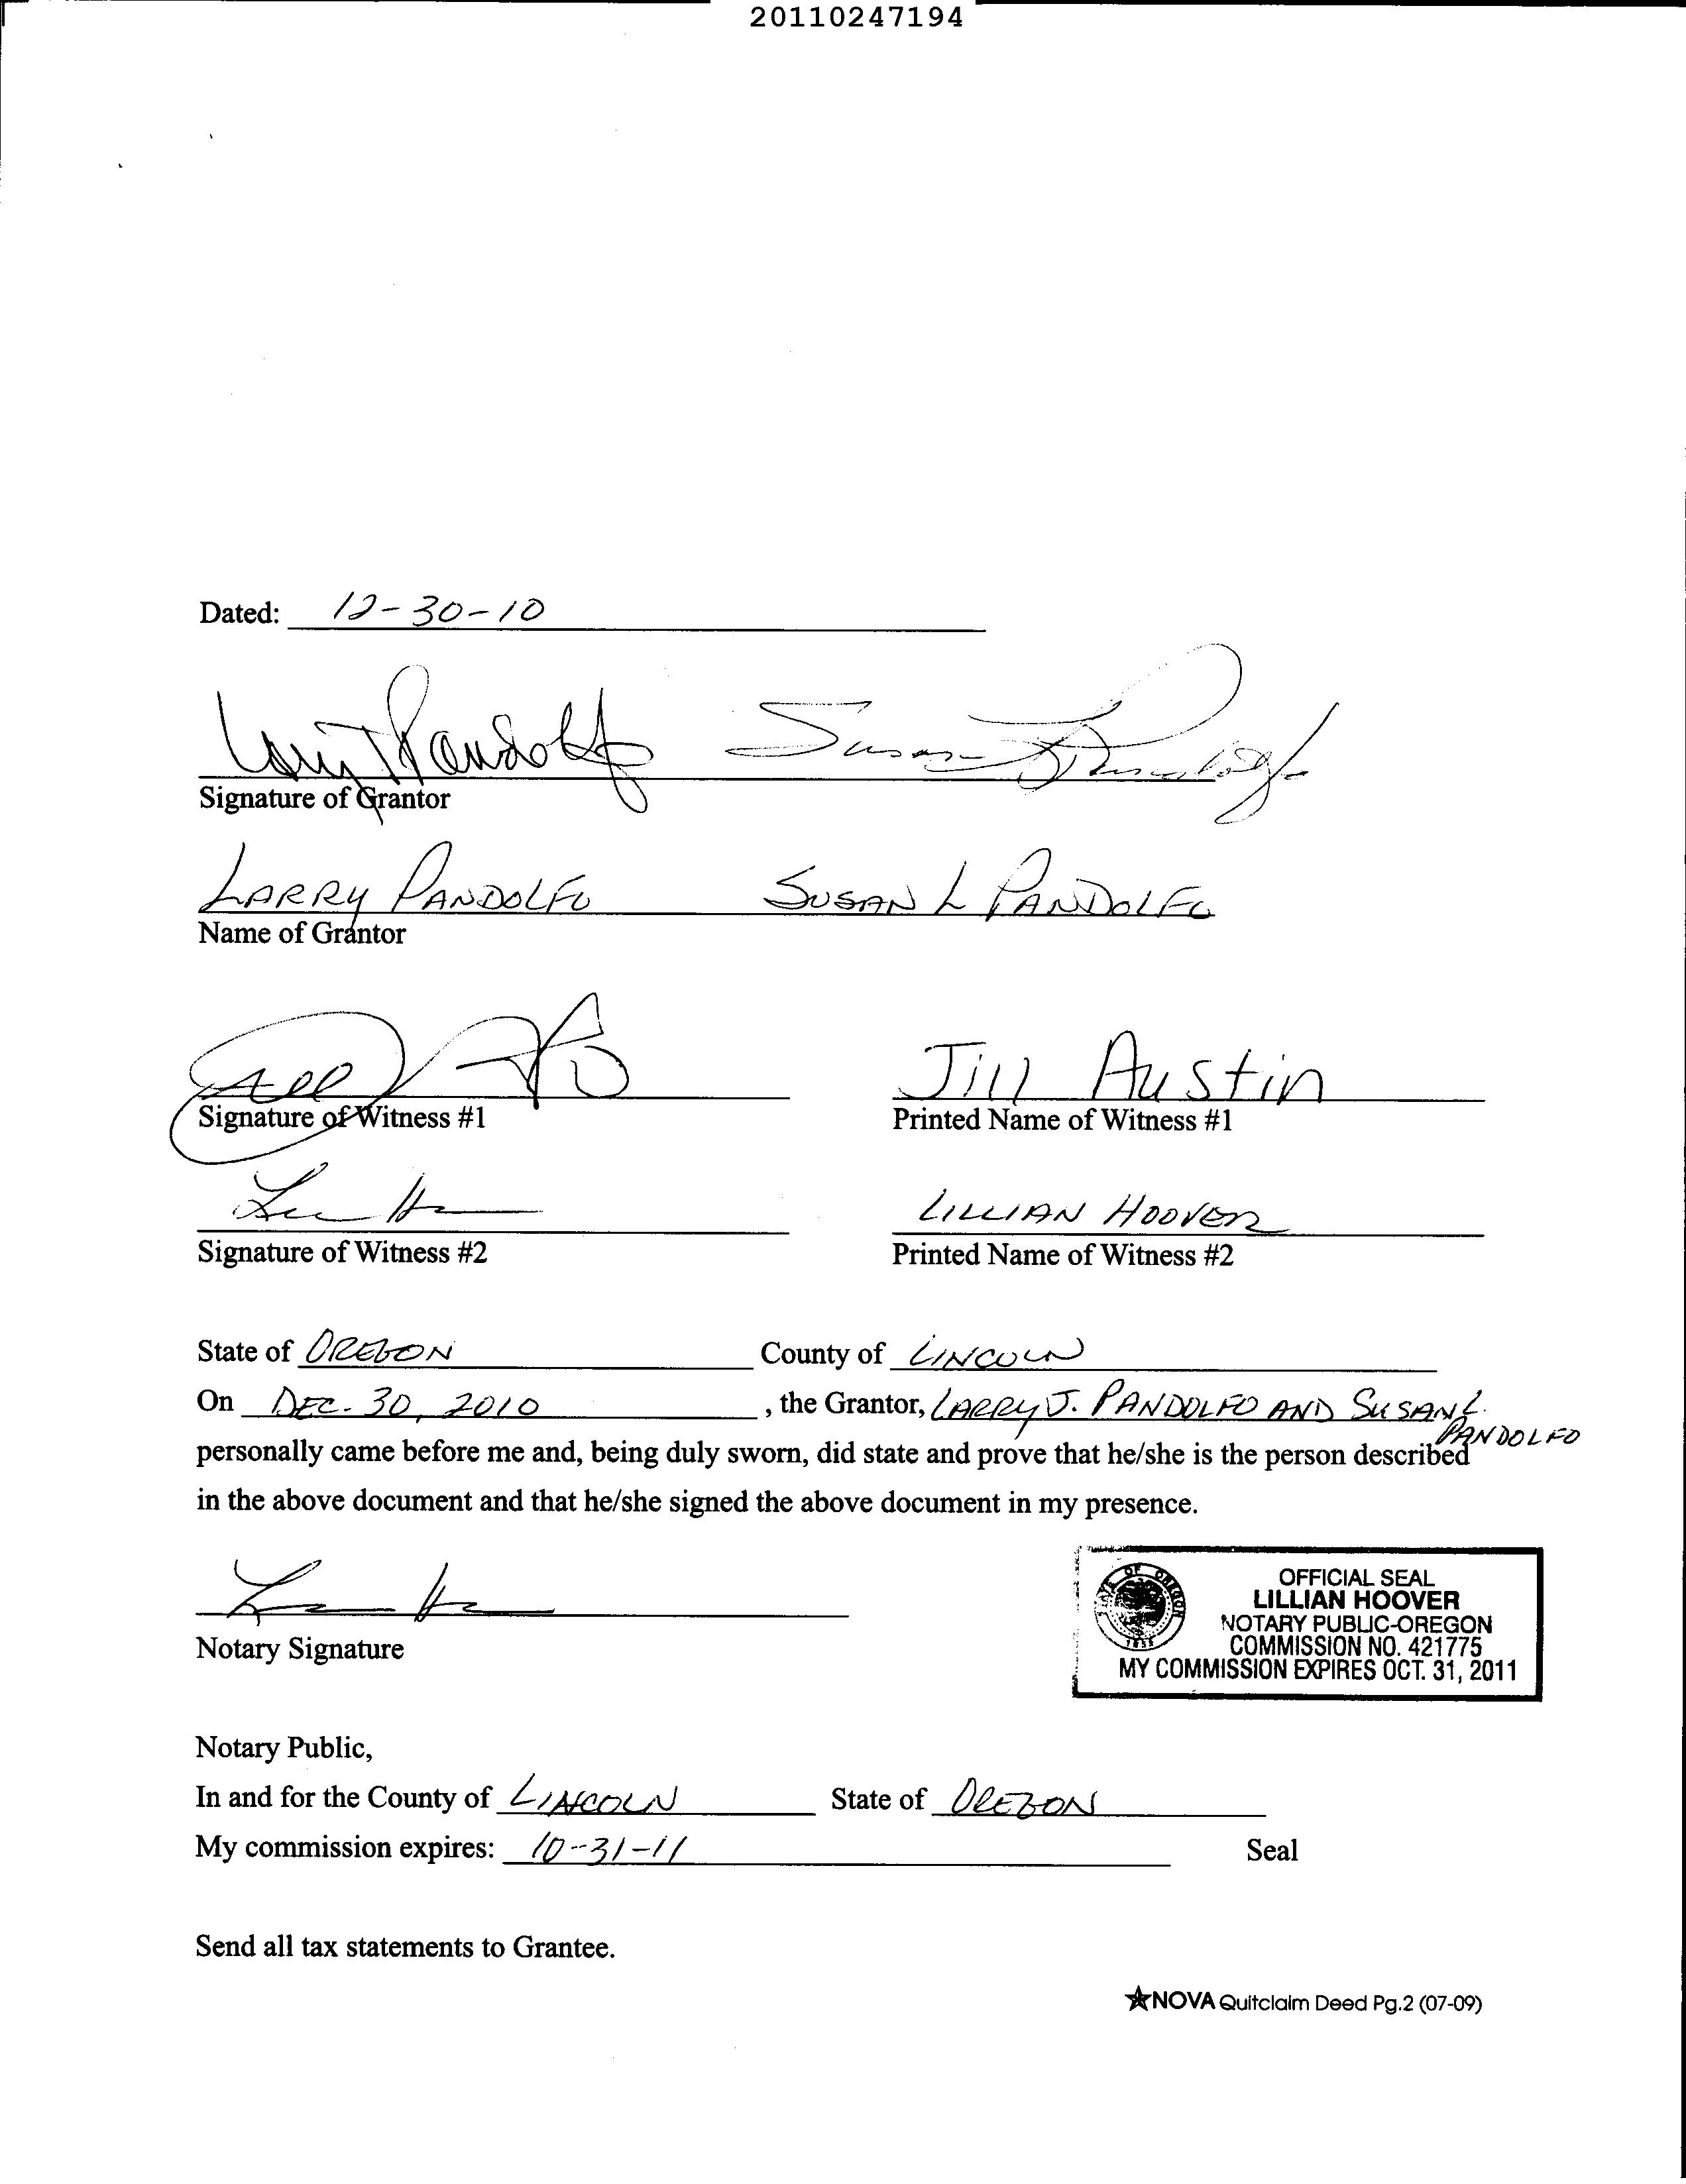 20110247194
Dated: 12-30-10
Larry J Pandolfo Susan L Pandolfo
Signature of Grantor
LARRY PANDOLFO SUSAN L PANDOLFO
Name of Grantor
Jill Austin
Signature of Witness #1 Printed Name of Witness #1
LILLIAN HOOVER
Signature of Witness #2 Printed Name of Witness #2
State of OREGON County of LINCOLN
On DEC. 30, 2010, the Grantor, LARRY J. PANDOLFO AND SUSAN L.
PANDOLFO
personally came before me and, being duly sworn, did state and prove that he/she is the person described
in the above document and that he/she signed the above document in my presence.
OFFICIAL SEAL
LILLIAN HOOVER
NOTARY PUBLIC-OREGON
COMMISSION NO. 421775
MY COMMISSION EXPIRES OCT. 31, 2011
Notary Signature
Notary Public,
In and for the County of LINCOLN State of OREGON
My commission expires: 10-31-11 Seal
Send all tax statements to Grantee.
NOVA Quitclaim Deed Pg.2 (07-09)